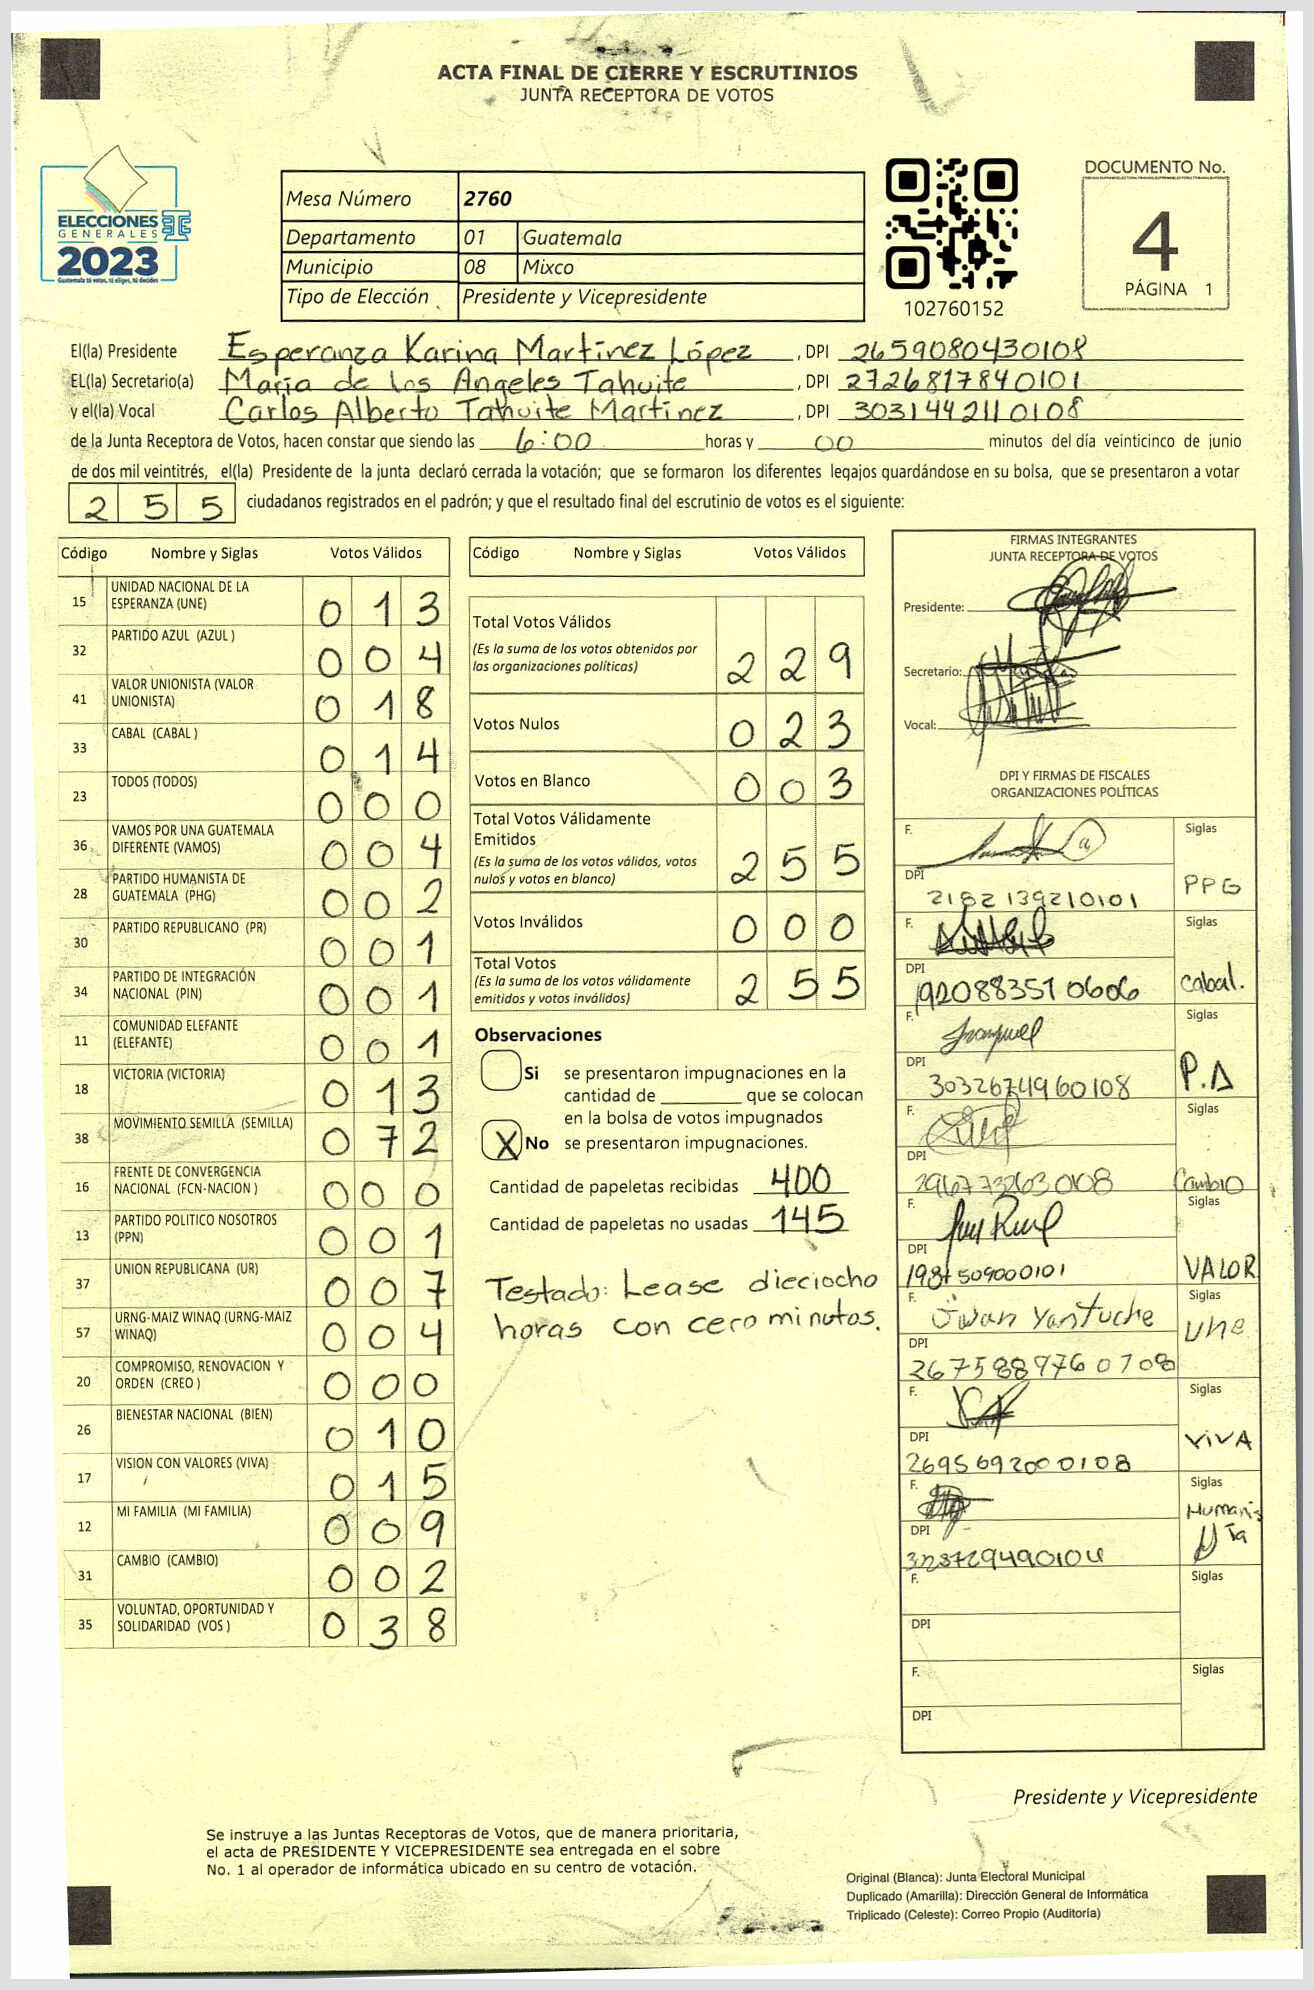 ACTA FINAL DE CIERRE Y ESCRUTINIOS
JUNTA RECEPTORA DE VOTOS
ELECCIONES
GENERALES
2023
Guatemala tú votas, tú eliges, tú decides
Mesa Número 2760
Departamento 01 Guatemala
Municipio 08 Mixco
Tipo de Elección Presidente y Vicepresidente
102760152
DOCUMENTO No.
4
PÁGINA 1
El(la) Presidente Esperanza Karina Martínez López, DPI 2659080430108
EL(la) Secretario(a) María de los Angeles Tahuite, DPI 2726817840101
y el(la) Vocal Carlos Alberto Tahuite Martínez, DPI 3031442110108
de la Junta Receptora de Votos, hacen constar que siendo las 6:00 horas y 00 minutos del día veinticinco de junio
de dos mil veintitrés, el(la) Presidente de la junta declaró cerrada la votación; que se formaron los diferentes legajos guardándose en su bolsa, que se presentaron a votar
255 ciudadanos registrados en el padrón; y que el resultado final del escrutinio de votos es el siguiente:
Código Nombre y Siglas Votos Válidos
15 UNIDAD NACIONAL DE LA ESPERANZA (UNE) 013
32 PARTIDO AZUL (AZUL ) 004
41 VALOR UNIONISTA (VALOR UNIONISTA) 018
33 CABAL (CABAL ) 014
23 TODOS (TODOS) 000
36 VAMOS POR UNA GUATEMALA DIFERENTE (VAMOS) 004
28 PARTIDO HUMANISTA DE GUATEMALA (PHG) 002
30 PARTIDO REPUBLICANO (PR) 001
34 PARTIDO DE INTEGRACIÓN NACIONAL (PIN) 001
11 COMUNIDAD ELEFANTE (ELEFANTE) 001
18 VICTORIA (VICTORIA) 013
38 MOVIMIENTO SEMILLA (SEMILLA) 072
16 FRENTE DE CONVERGENCIA NACIONAL (FCN-NACION ) 000
13 PARTIDO POLITICO NOSOTROS (PPN) 001
37 UNION REPUBLICANA (UR) 007
57 URNG-MAIZ WINAQ (URNG-MAIZ WINAQ) 004
20 COMPROMISO, RENOVACION Y ORDEN (CREO ) 000
26 BIENESTAR NACIONAL (BIEN) 010
17 VISION CON VALORES (VIVA) 015
12 MI FAMILIA (MI FAMILIA) 009
31 CAMBIO (CAMBIO) 002
35 VOLUNTAD, OPORTUNIDAD Y SOLIDARIDAD (VOS ) 038
Código Nombre y Siglas Votos Válidos
Total Votos Válidos
(Es la suma de los votos obtenidos por
las organizaciones políticas) 229
Votos Nulos 023
Votos en Blanco 003
Total Votos Válidamente
Emitidos
(Es la suma de los votos válidos, votos
nulos y votos en blanco) 255
Votos Inválidos 000
Total Votos
(Es la suma de los votos válidamente
emitidos y votos inválidos) 255
Observaciones
Si se presentaron impugnaciones en la
cantidad de ________ que se colocan
en la bolsa de votos impugnados
X No se presentaron impugnaciones.
Cantidad de papeletas recibidas 400
Cantidad de papeletas no usadas 145
Testado: Lease dieciocho
horas con cero minutos.
FIRMAS INTEGRANTES
JUNTA RECEPTORA DE VOTOS
Presidente:
Secretario:
Vocal:
DPI Y FIRMAS DE FISCALES
ORGANIZACIONES POLÍTICAS
F. Siglas
DPI 2182139210101 PPG
F. Siglas
DPI 1920883510606 Cabal.
F. Siglas
DPI 3032674960108 P.A
F. Siglas
DPI 2967732630108 Cambio
F. Siglas
DPI VALOR
F. Juan Yantuche Siglas
DPI 2675889760108 Une
F. Siglas
DPI 2695692000108 VIVA
F. Siglas
DPI Humanis
ta
F. Siglas
DPI
F. Siglas
DPI
Presidente y Vicepresidente
Se instruye a las Juntas Receptoras de Votos, que de manera prioritaria,
el acta de PRESIDENTE Y VICEPRESIDENTE sea entregada en el sobre
No. 1 al operador de informática ubicado en su centro de votación.
Original (Blanca): Junta Electoral Municipal
Duplicado (Amarilla): Dirección General de Informática
Triplicado (Celeste): Correo Propio (Auditoría)